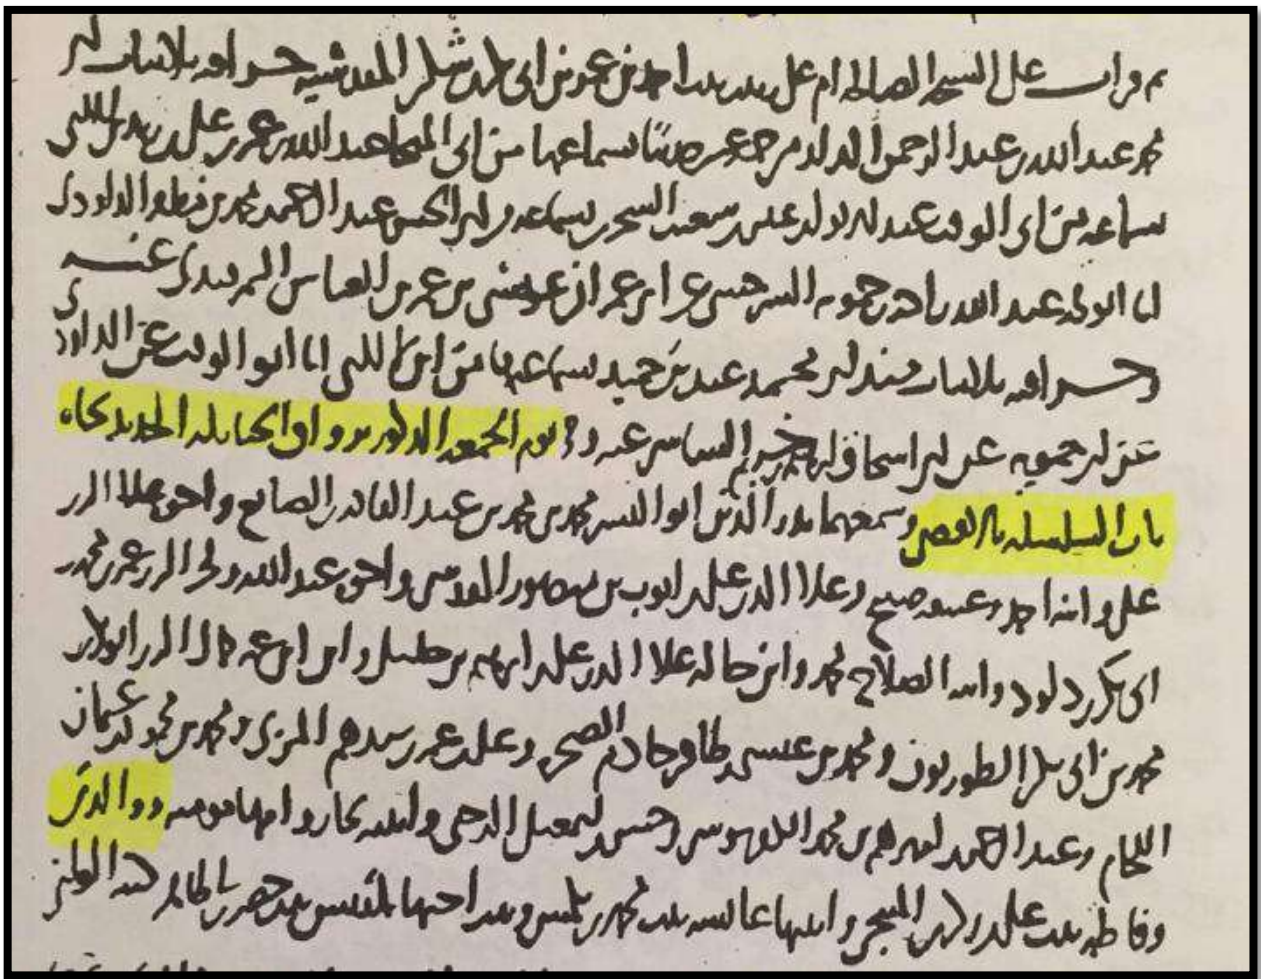 ثم قرات على الشيخة الصالحة ام علي بنت احمد بن عمر بن ابي بكر بن شكر المقدسية جزءا فيه ثلاثيات ابي
محمد عبد الله بن عبد الرحمن الدارمي خمسة عشر حديثا بسماعها من ابي المنجا عبد الله بن عمر بن علي بن زيد بن اللتي
بسماعه من ابي الوقت عبد الاول بن عيسى بن شعيب السجزي بسماعه من ابي الحسن عبد الرحمن بن محمد بن مظفر الداودي
انا ابو محمد عبد الله بن احمد بن حمويه السرخسي عن ابي عمران عيسى بن عمر بن العباس السمرقندي عنه
وجزءا فيه ثلاثيات مسند ابي محمد عبد بن حميد بسماعها من ابن اللتي انا ابو الوقت عن الداودي
عن ابن حمويه عن ابي اسحاق ابراهيم بن خزيم الشاشي عنه في يوم الجمعة المذكور برواق الحنابلة الجديد تجاه
باب السلسلة بالاقصى وسمعهما بدر الدين ابو اليسر محمد بن محمد بن عبد القادر الصائغ واخوه علاء الدين
علي وابنه احمد وعتيقه صبيح وعلاء الدين علي بن ايوب بن منصور المقدسي واخوه عبد الله وفخر الدين عمر بن محمد بن
ابي بكر بن داود وابنه الصلاح محمد وابن خاله علاء الدين علي بن ابراهيم بن خليل وابن ابن عمه كمال الدين ابو بكر بن
محمد بن ابي بكر الطوريون ومحمد بن عيسى بن ظافر خادم الصخرة وعلي بن عمر بن المزي ومحمد بن محمود بن عثمان
اللحام وعبد الرحمن بن ابراهيم بن محمد وحسن بن اسمعيل وابنته وامها مومنة ووالدتي
وفاطمة بنت علي بن المنبجي وابنتها عائشة بنت محمد بن وبنت اختها بلقيس بنت خضر